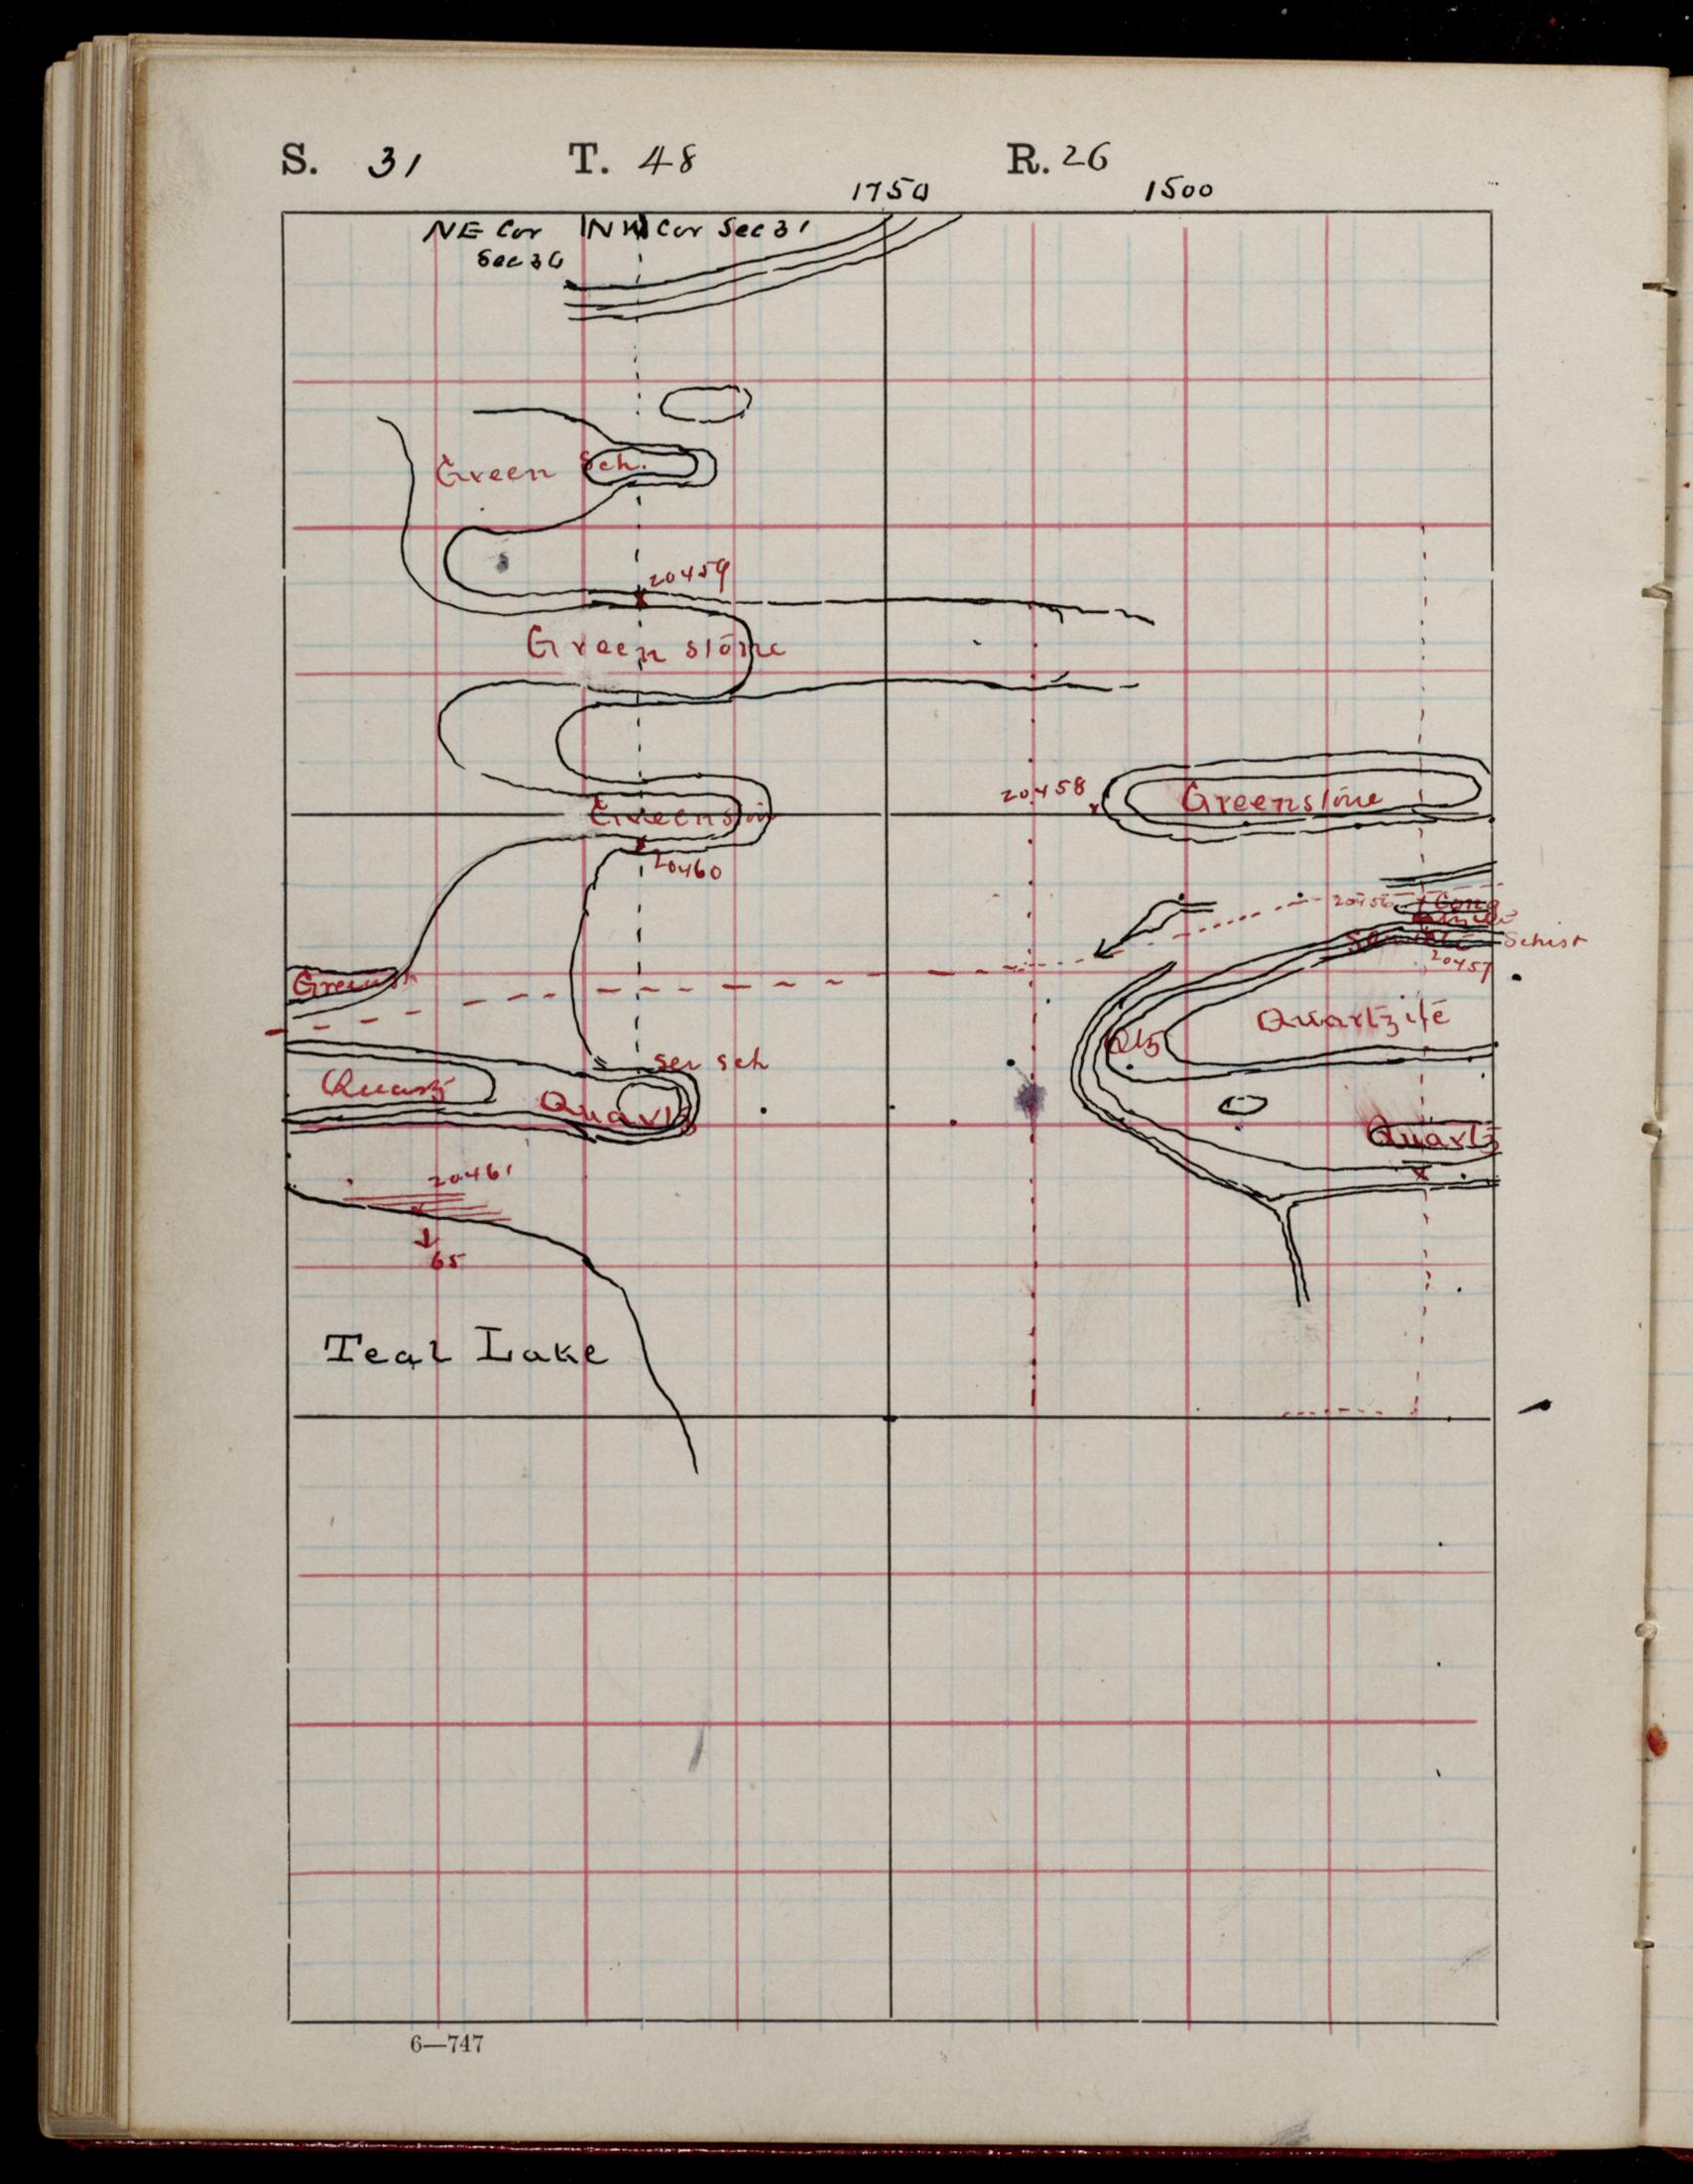 S. 31 T. 48 R. 26
1750 1500
NE Cor NW Cor Sec 31
Sec 36
Green Sch.
20459
Green stone
20458
Greenstone
Greenston
20460
20456 Cong
Schist
20457
Greens
Quartzite
Qtz
Ser sch
Quartz
Quartz
Quartz
20461
65
Teal Lake
6—747